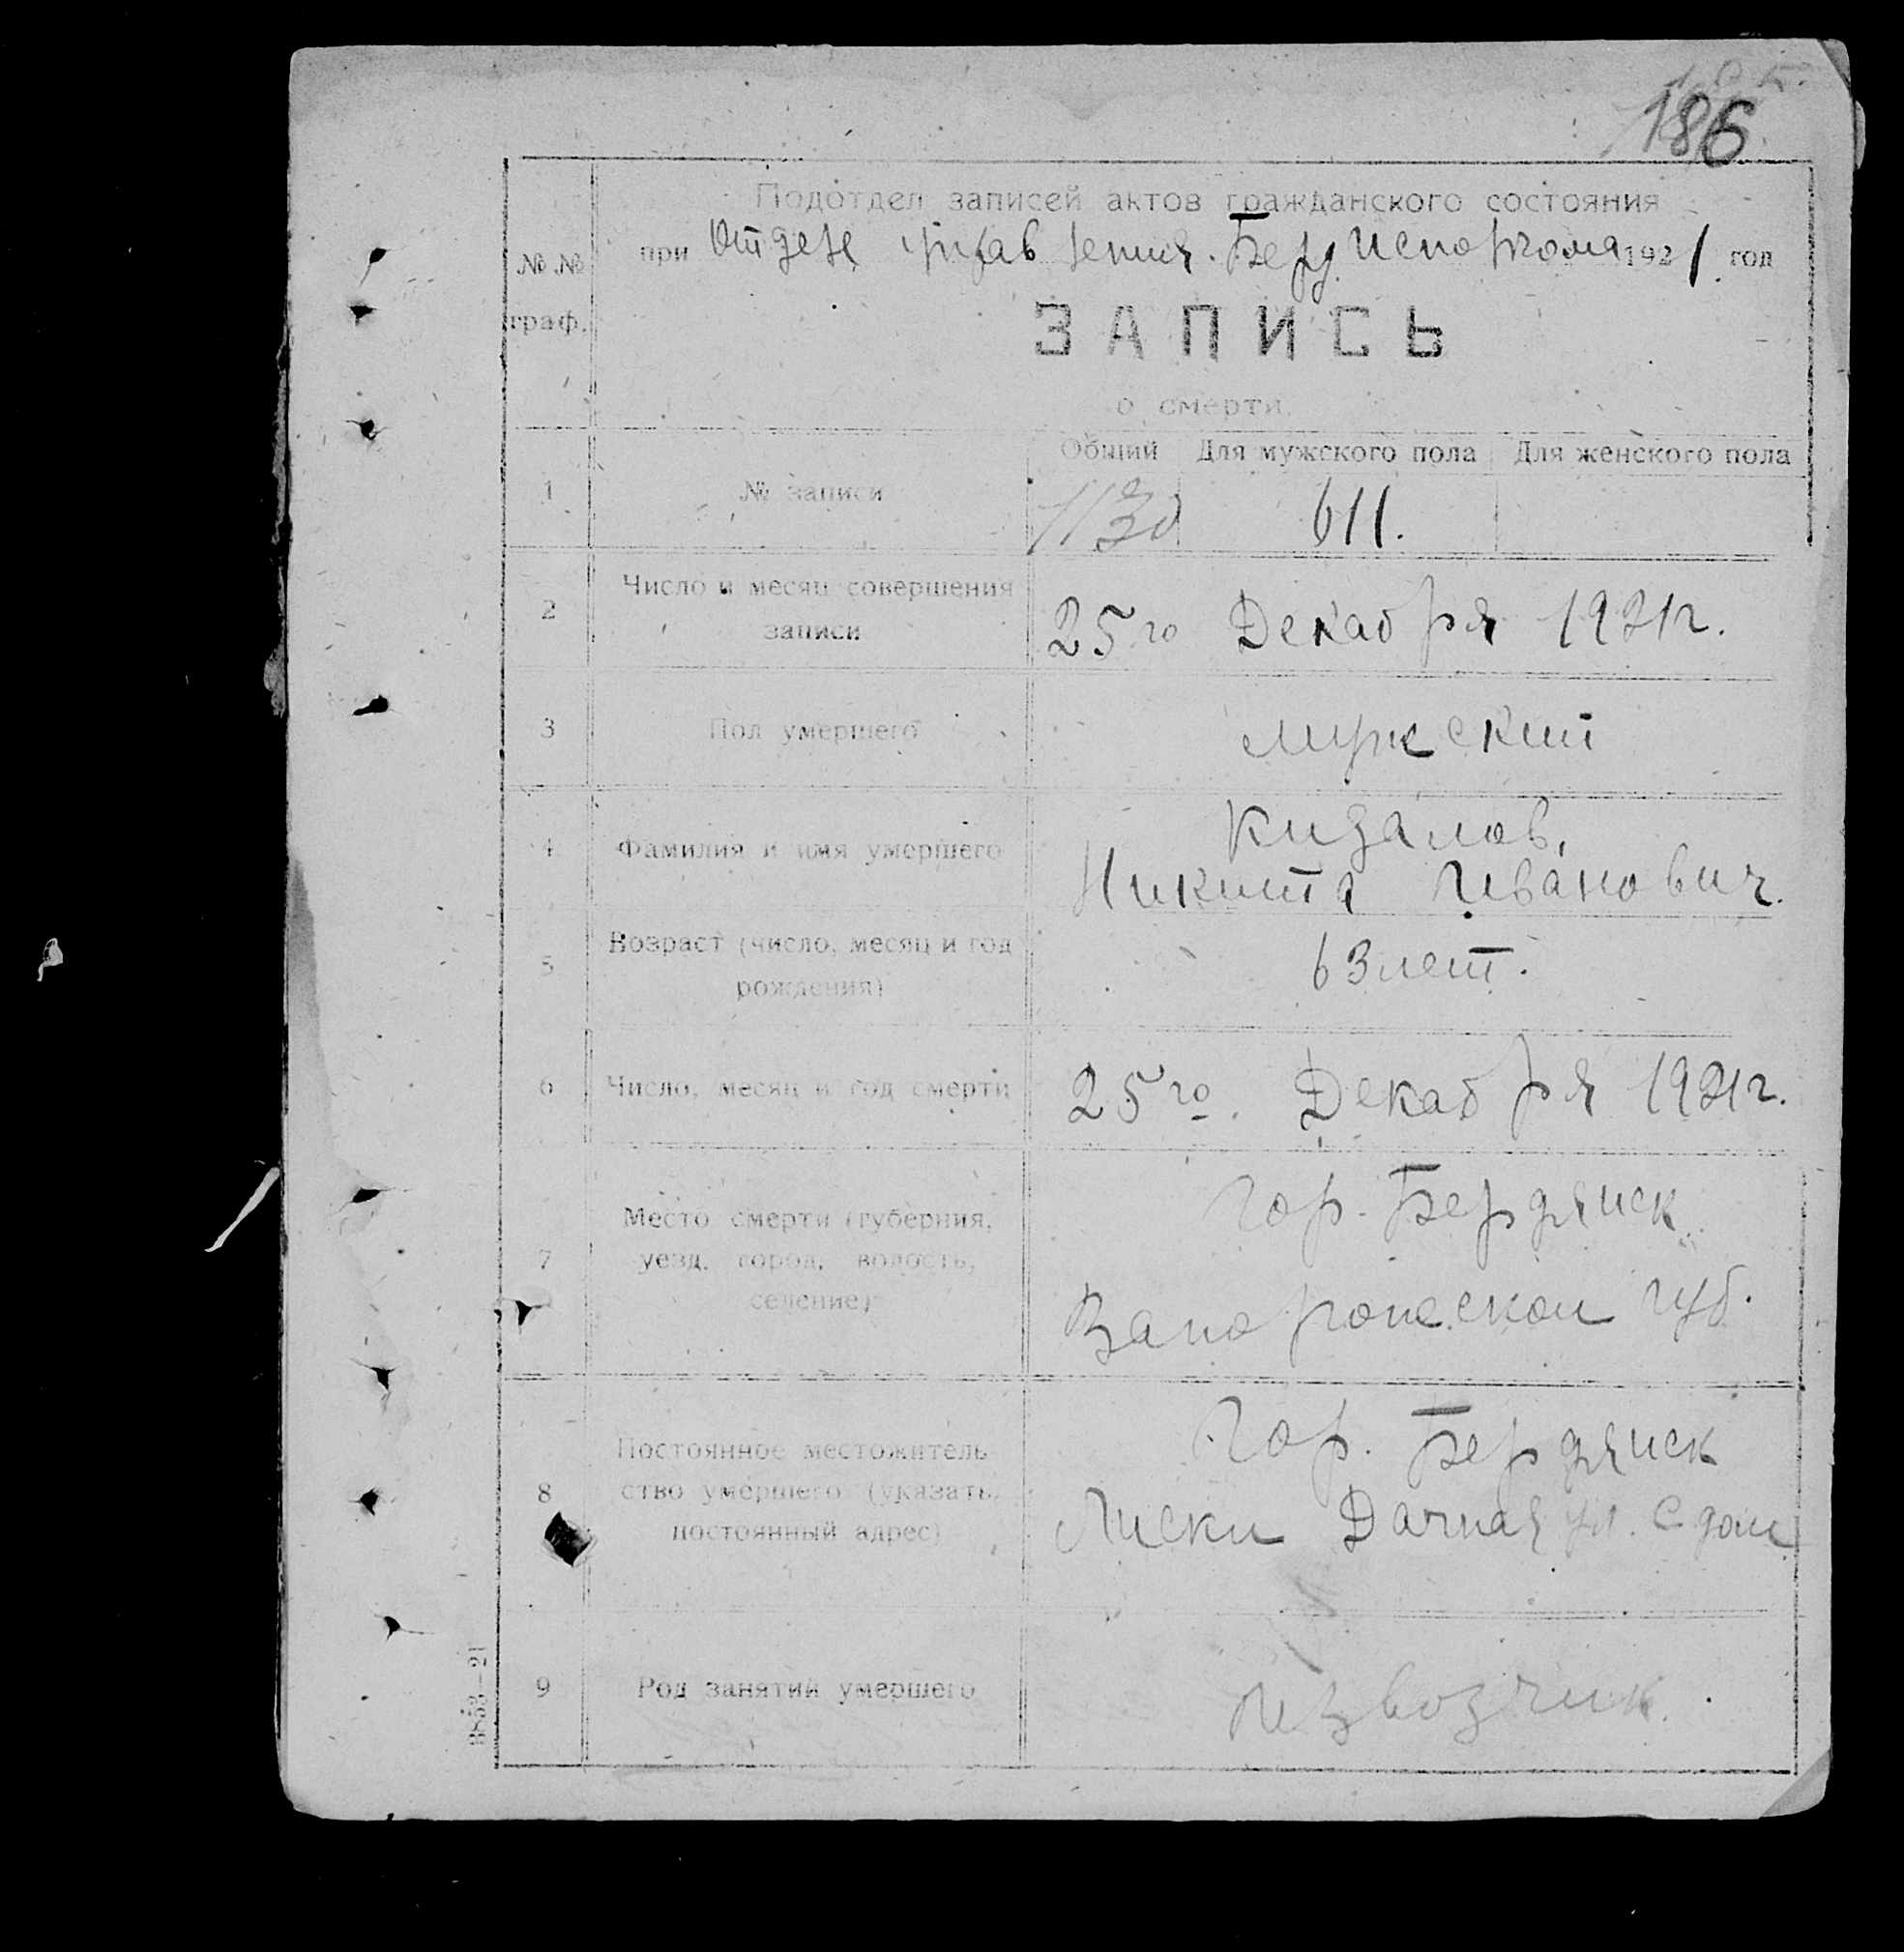 186
Подотдел записей актов гражданского состояния
при Отделе управления Берд. Исполкома 1921 год
№ № граф.
ЗАПИСЬ
о смерти.
Общий Для мужского пола Для женского пола
1 № записи 1130 611.
2 Число и месяц совершения
записи
25го Декабря 1921г.
3 Пол умершего мужский
4 Фамилия и имя умершего
Кизалов,
Никита Иванович.
5 Возраст (число, месяц и год
рождения)
63 лет.
6 Число, месяц и год смерти 25го. Декабря 1921г.
7 Место смерти (губерния,
уезд, город, волость,
селение)
Гор. Бердянск
Запорожской губ.
8 Постоянное местожитель-
ство умершего (указать
постоянный адрес)
Гор. Бердянск
Лиски Дачная ул. с. дом
9 Род занятий умершего Извозчик.
3853—21